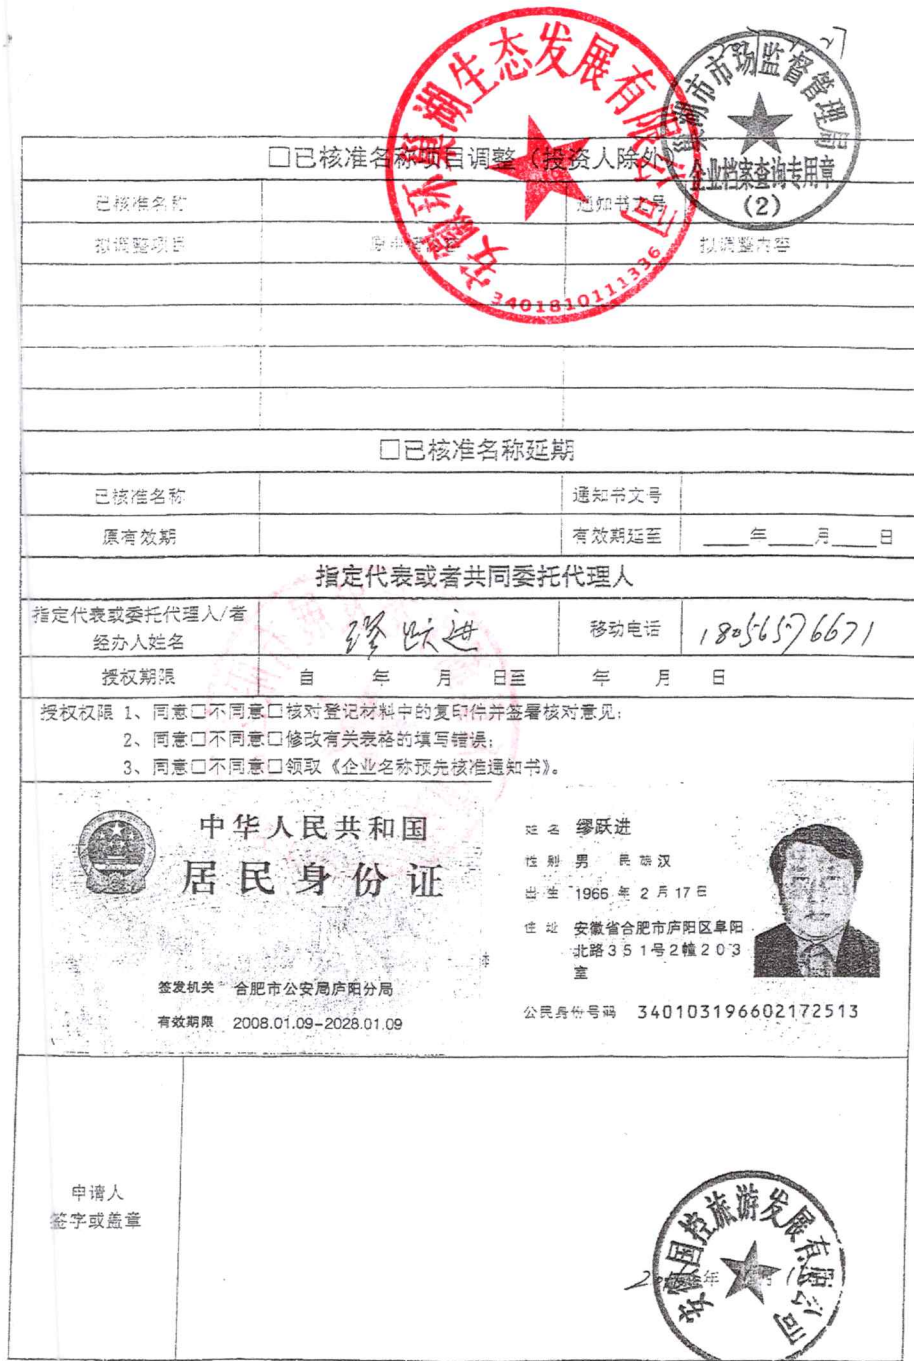 安徽环巢湖生态发展有限公司
3401810111336
巢湖市市场监督管理局
企业档案查询专用章
(2)
□已核准名称项目调整（投资人除外）
已核准名称 通知书文号
拟调整项目 原申请内容 拟调整内容
□已核准名称延期
已核准名称 通知书文号
原有效期 有效期延至 ____年____月____日
指定代表或者共同委托代理人
指定代表或委托代理人/者
经办人姓名 缪跃进 移动电话 18056576671
授权期限 自 年 月 日至 年 月 日
授权权限 1、同意□不同意□核对登记材料中的复印件并签署核对意见;
2、同意□不同意□修改有关表格的填写错误;
3、同意□不同意□领取《企业名称预先核准通知书》。
中华人民共和国
居民身份证
签发机关 合肥市公安局庐阳分局
有效期限 2008.01.09-2028.01.09
姓名 缪跃进
性别 男 民族 汉
出生 1966 年 2 月 17 日
住址 安徽省合肥市庐阳区阜阳
北路351号2幢203
室
公民身份号码 340103196602172513
申请人
签字或盖章
安徽国控旅游发展有限公司
年 月